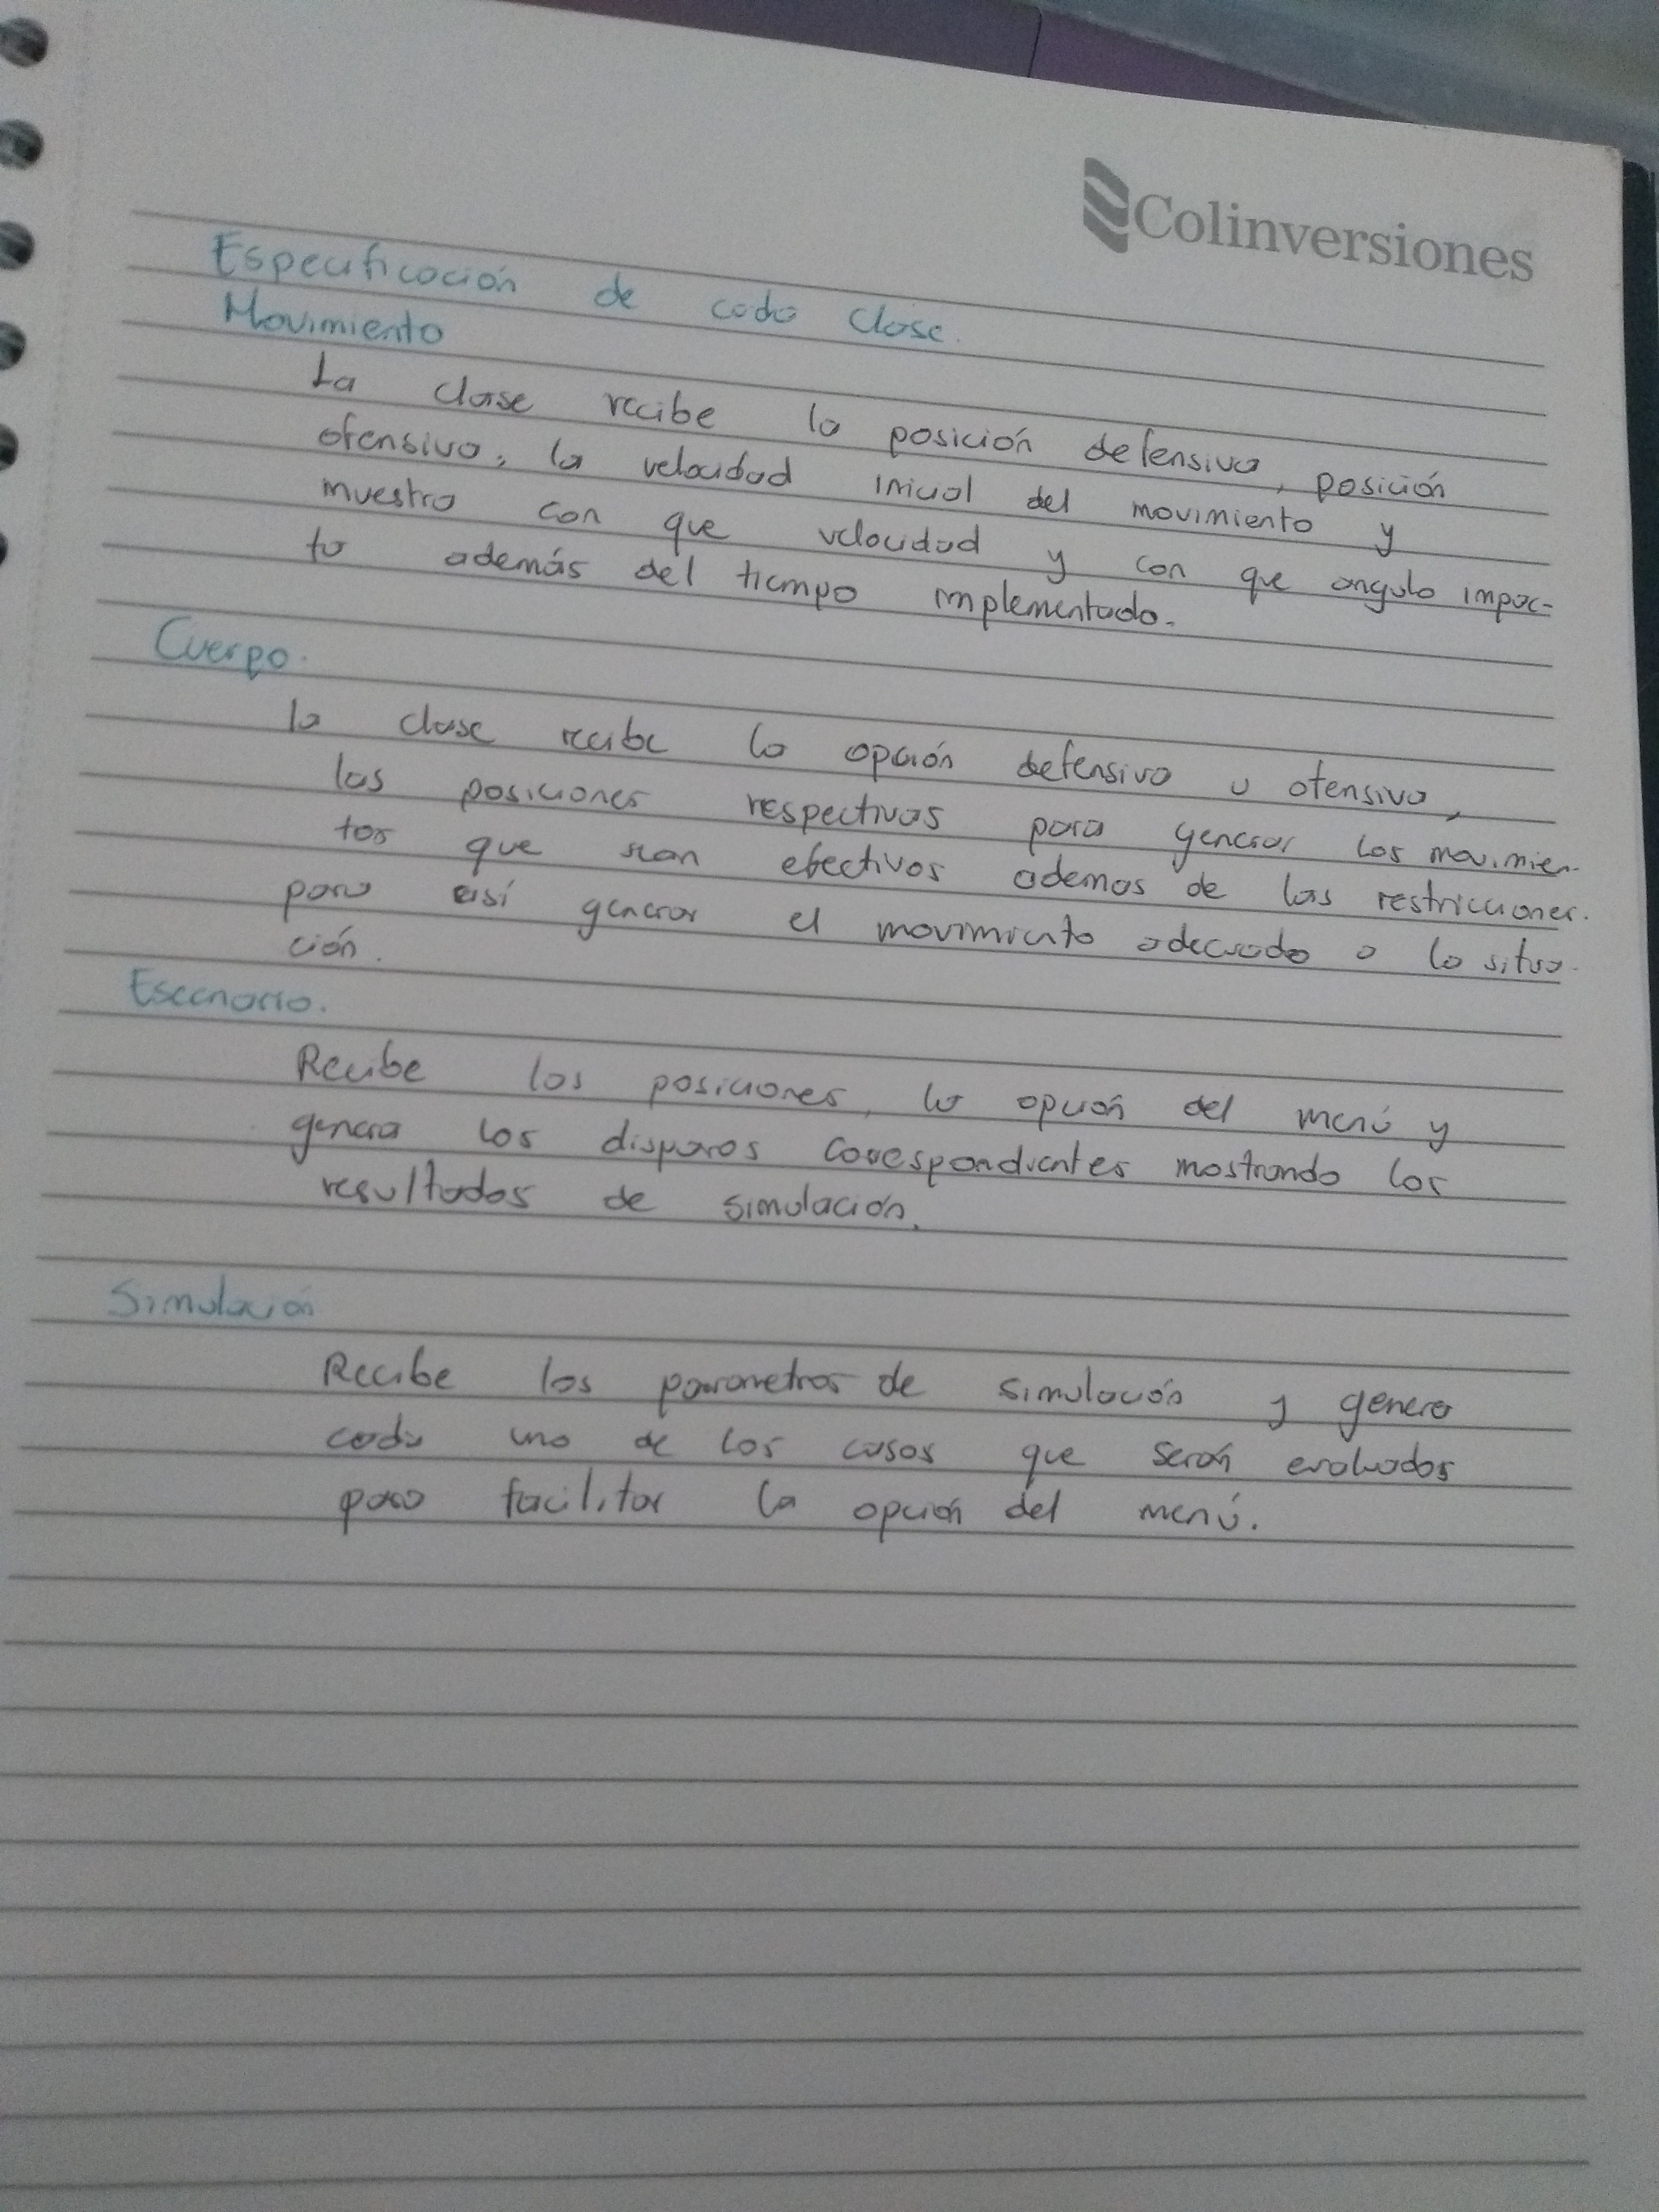 Colinversiones
Especificación de cada clase.
Movimiento
La clase recibe la posición defensiva, posición
ofensiva, la velocidad inicial del movimiento y
muestra con que velocidad y con que angulo impac-
ta además del tiempo implementado.
Cuerpo.
la clase recibe la opción defensiva u ofensiva,
las posiciones respectivas para generar los movimien-
tos que sean efectivos ademas de las restricciones.
para así generar el movimiento adecuado a la situa-
ción.
Escenario.
Recibe las posiciones, la opción del menú y
genera los disparos correspondientes mostrando los
resultados de simulación.
Simulación
Recibe los parametros de simulación y genera
cada uno de los casos que serán evaluados
para facilitar la opción del menú.